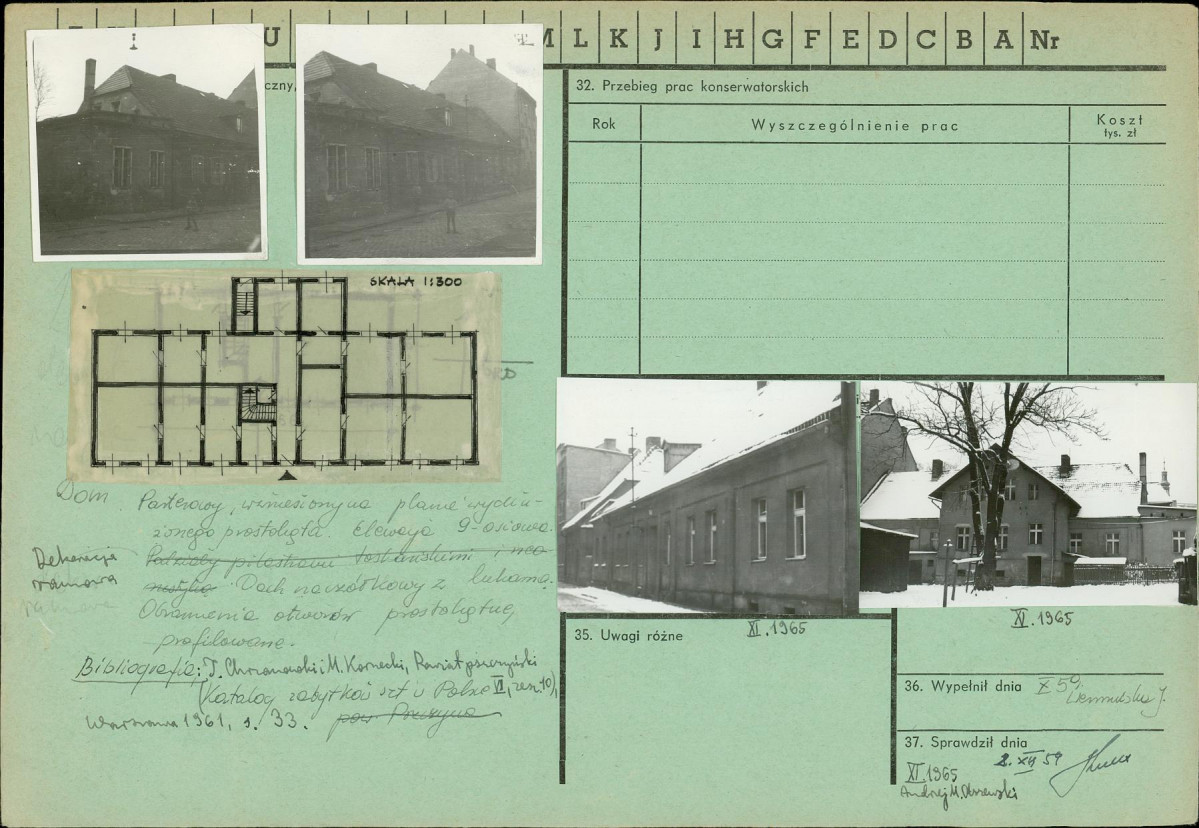 U
M L K J I H G F E D C B A Nr
czny,
32. Przebieg prac konserwatorskich
Rok
Wyszczególnienie prac
Koszt
tys. zł
SKALA 1:300
Dom Parterowy, wzniesiony na planie wydłu-
żonego prostokąta. Elewacja 9-osiowa.
Dekoracja
ramowa
Podziały pilastrami toskańskimi i
Dach naczółkowy łukama.
Obramienia otworów prostokątne,
profilowane.
Bibliografia: T. Chrzanowski i M. Kornecki, Powiat pszczyński
(Katalog zabytków szt. w Polsce VI, zesz. 10),
Warszawa 1961, s. 33. pow. Pszczyna
XI.1965
XI.1965
35. Uwagi różne
36. Wypełnił dnia X 59
37. Sprawdził dnia
2. XII 59
XI.1965
Andrzej M. Olszewski